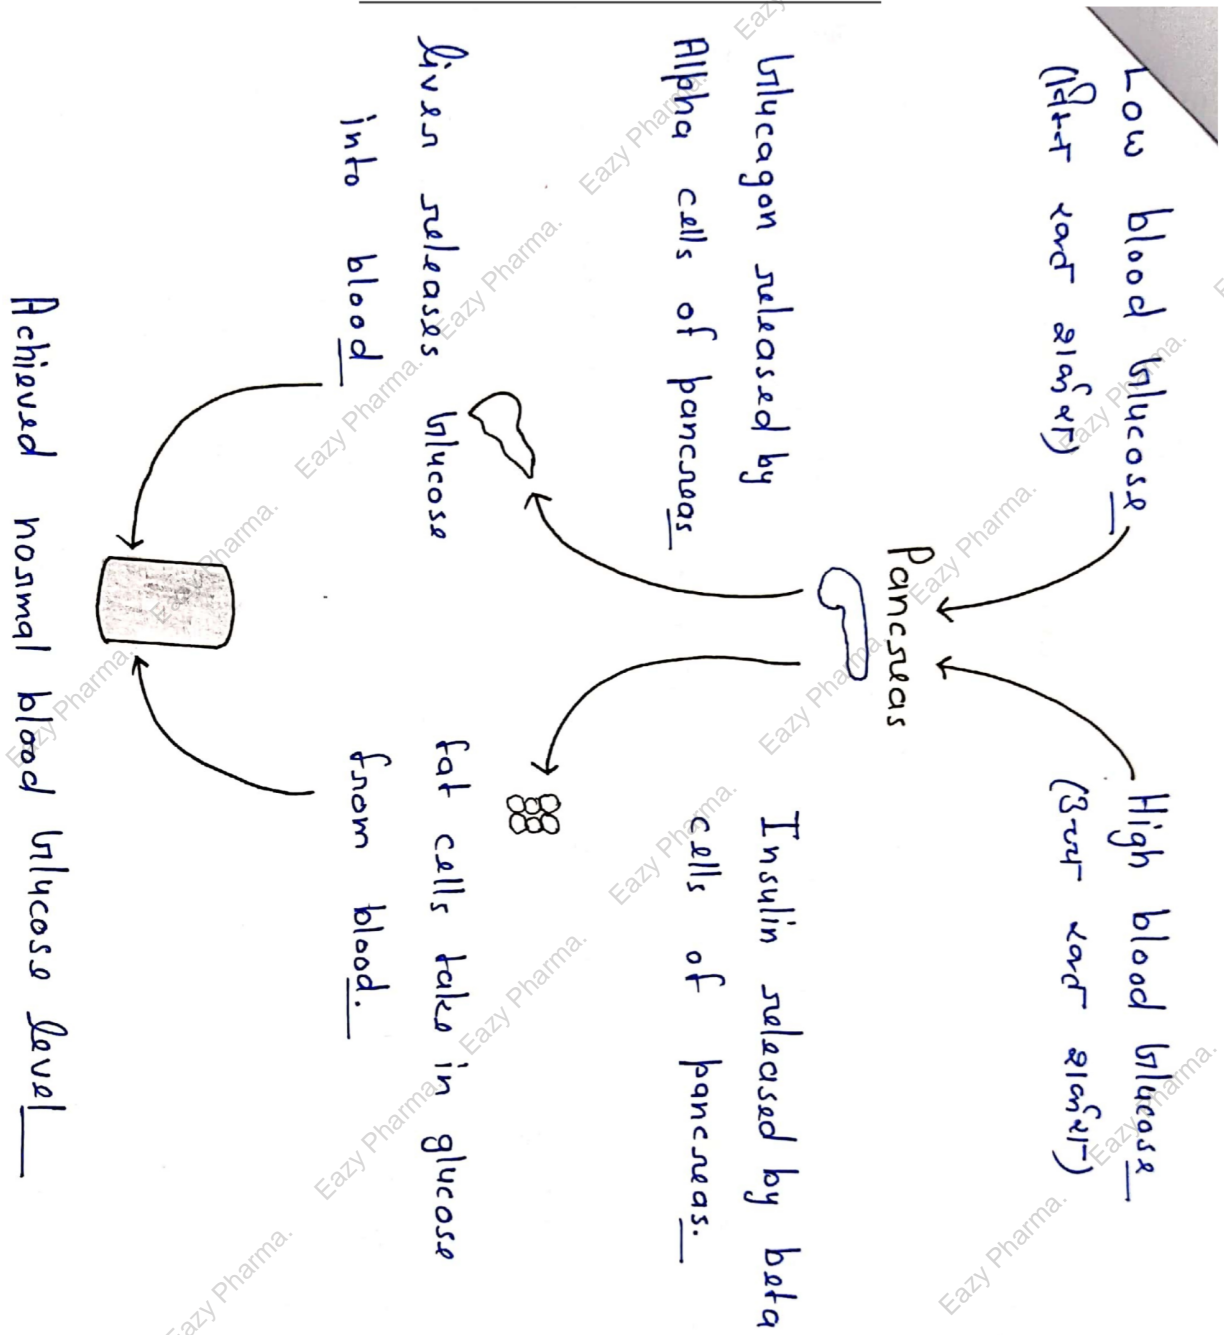 Low blood Glucose
(निम्न रक्त शर्करा)
High blood Glucose
(उच्च रक्त शर्करा)
Pancreas
Glucagon released by
Alpha cells of pancreas
Insulin released by beta
cells of pancreas.
liver releases Glucose
into blood
fat cells take in glucose
from blood.
Achieved normal blood Glucose level
Eazy Pharma.